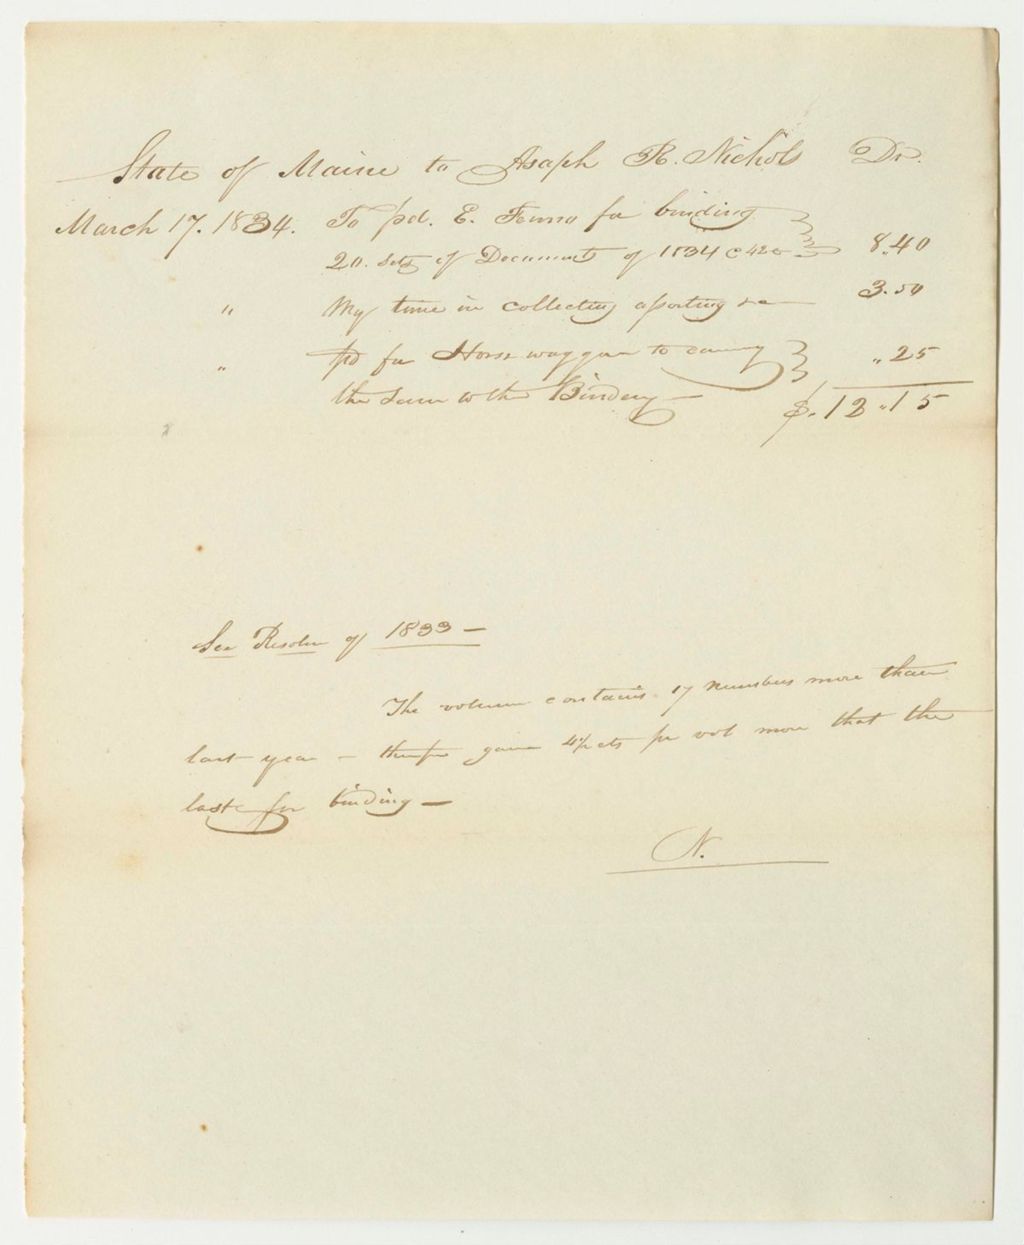 State of Maine to Asaph R. Nichols Dr.
March 17. 1834. To pd. E. Fenno for binding
20. Sets of Documents of 1834 @ 42c 8.40
" My time in collecting assorting &c — 3.50
" pd for Horse waggon to carry ".25
the same to the Bindery — $.12.15
See Resolve of 1833 —
The volume contains 17 numbers more than
last year — gave cts per vol more that the
last for binding —
N.